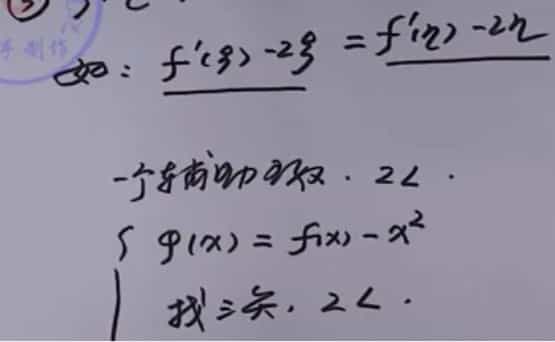 如: f'(ξ) -2ξ = f'(η) -2η
一个辅助函数. 2L.
{ φ(x) = f(x) - x²
找三矣. 2L.